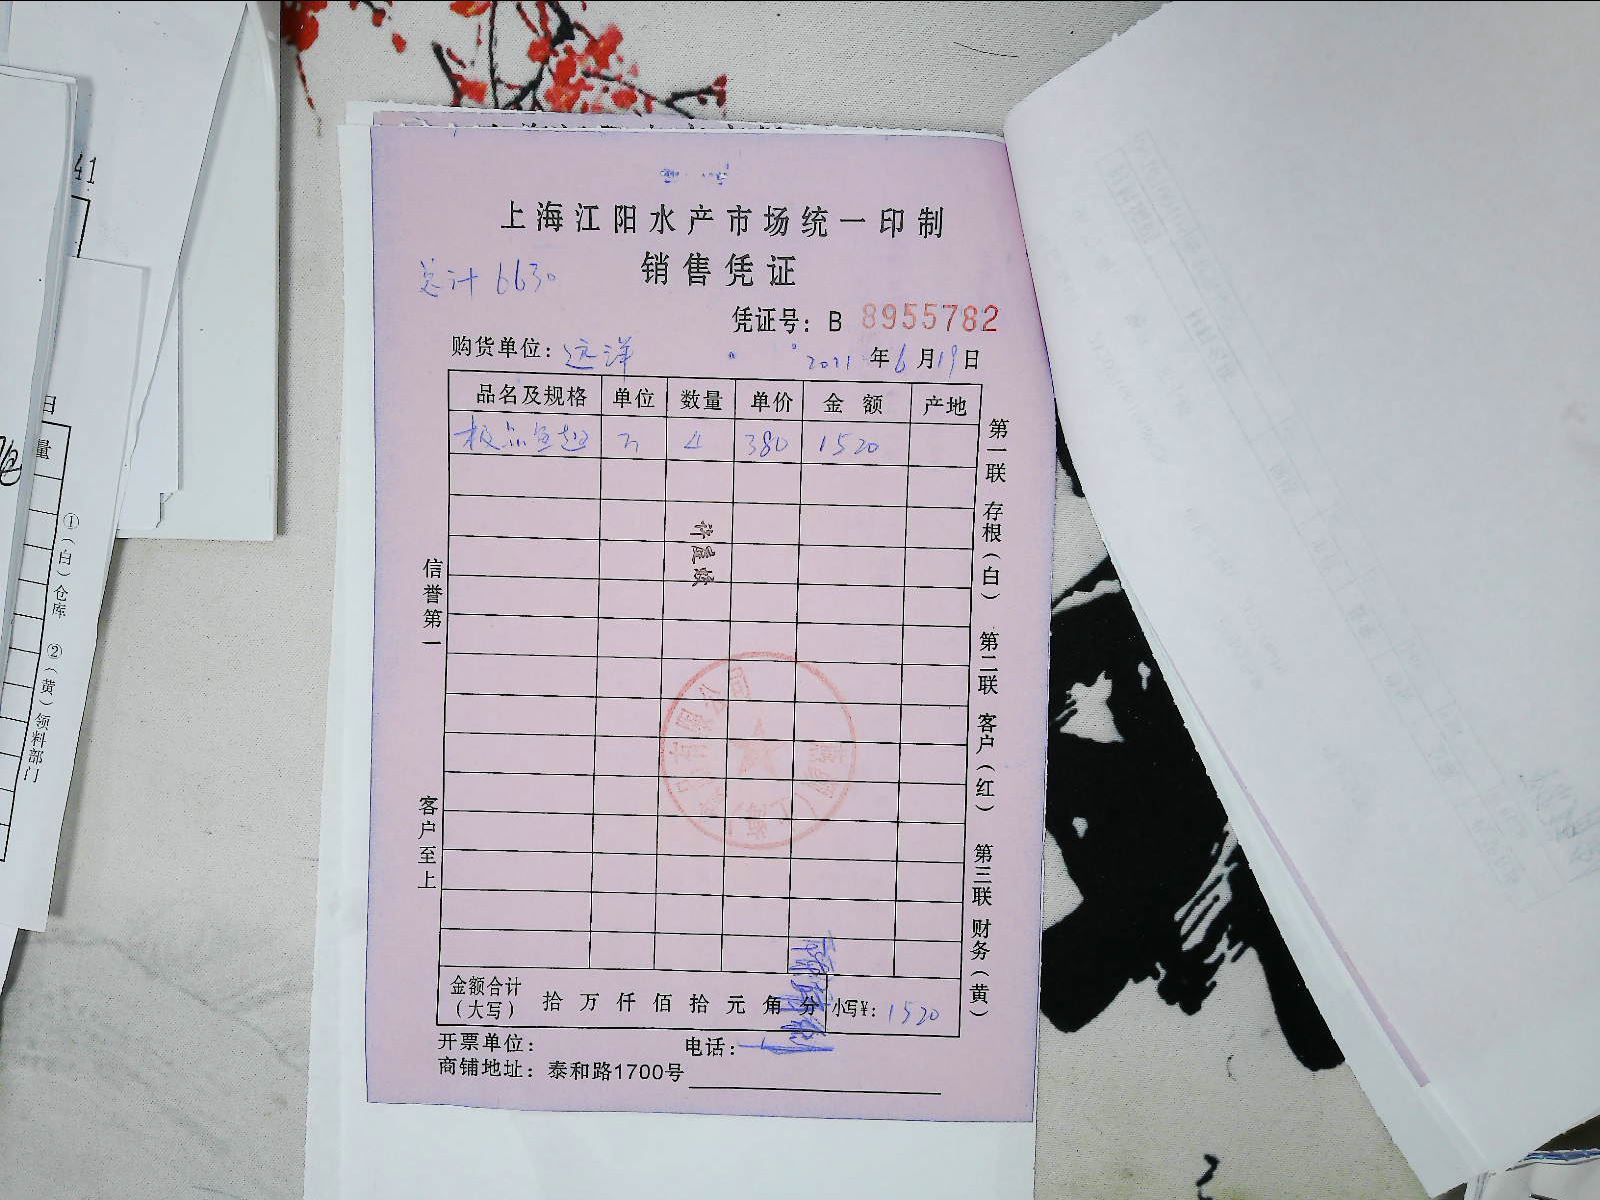 上海江阳水产市场统一印制
销售凭证
总计 6630
凭证号: B 8955782
购货单位: 远洋
2021 年 6 月 19 日
品名及规格 单位 数量 单价 金额 产地
极品鱼翅 4 380 1520
许
信誉第一
客户至上
第一联 存根(白) 第二联 客户(红) 第三联 财务(黄)
金额合计
(大写) 拾 万 仟 佰 拾 元 角 分 小写¥: 1520
开票单位: 电话:
商铺地址: 泰和路1700号
41
日
量
①(白)仓库 ②(黄)领料部门